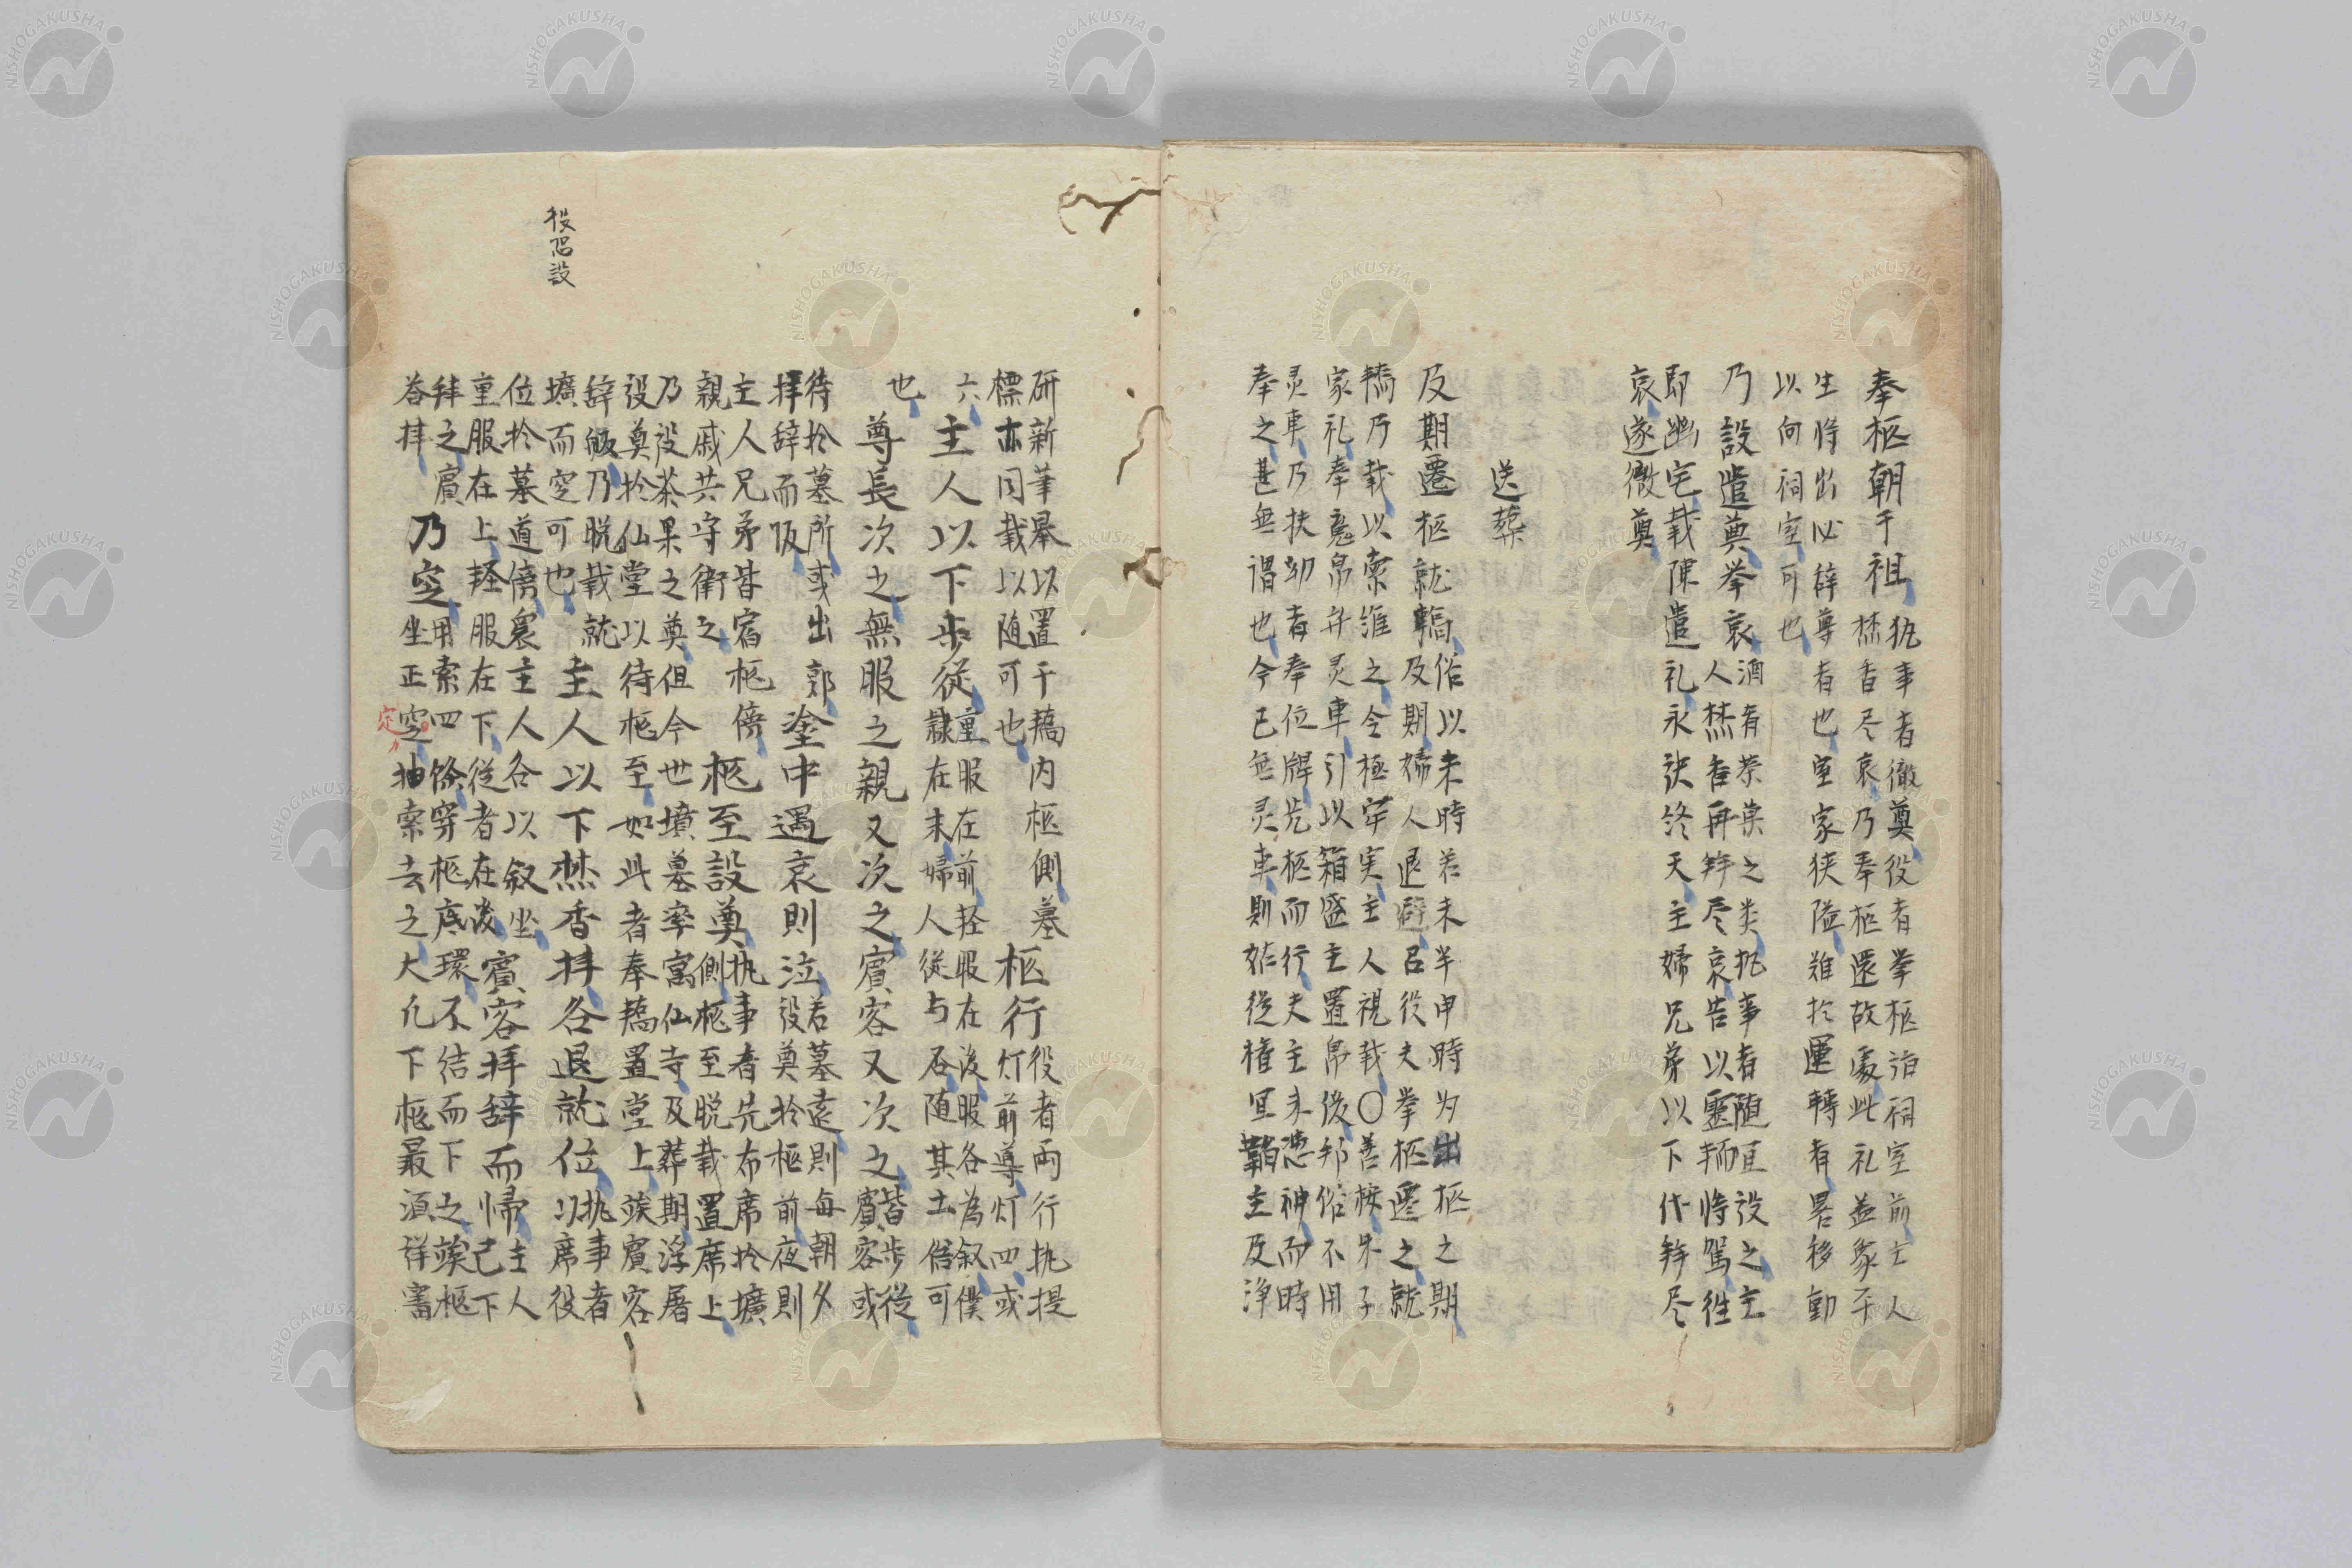 奉柩朝于祖
執事者徹奠役者挙柩詣祠室前主人
焚香尽哀乃奉柩還故処此礼盖象平
生将出必辞尊者也室家狭隘難於運轉者畧移動
以向祠室可也
乃設遣奠挙哀
酒肴茶菓之类執事者随宜設之主
人焚香再拜尽哀告以霊輀将駕徃
即幽宅載陳遣礼永訣終天主婦兄弟以下代拜尽
哀遂徹奠
送葬
及期遷柩就轎
俗以未時若未半申時为出柩之期
及期婦人退避召役夫挙柩遷之就
轎乃載以索維之令極牢実主人視載〇善按朱子
家礼奉魂帛升灵車引以箱盛主置帛後邦俗不用
灵車乃扶幼者奉位牌先柩而行夫主未憑神而時
奉之甚無謂也今已無灵車則姑従権宜韜主及浄
研新筆舉以置于轎内柩側墓
標亦同載以随可也
柩行
役者両行执提
灯前導灯四或
六
主人以下步従
重服在前軽服在後服各為叙僕
隷在末婦人従与否随其土俗可
也
尊長次之無服之親又次之賓客又次之
皆步従
賓客或
待於墓所或出郊
拝辞而皈
塗中遇哀則泣
若墓遠則每朝夕
設奠於柩前夜則
主人兄弟皆宿柩傍
親戚共守衛之
柩至設奠
执事者先布席於壙
側柩至脱載置席上
乃設茶果之奠但今世墳墓率寓仙寺及葬期浮屠
设奠於仙堂以待柩至如此者奉轎置堂上竢賓客
辞皈乃脱載就
壙而窆可也
主人以下焚香拝各退就位
执事者
以席役
位於墓道傍襄主人各以叙坐
重服在上軽服在下従者在後
賓客拝辞而帰
主人
已下
拝之賓
答拝
乃窆
用索四條穿柩底環不結而下之竢柩
坐正窆抽索去之大凡下柩最須詳審
定
役恐設